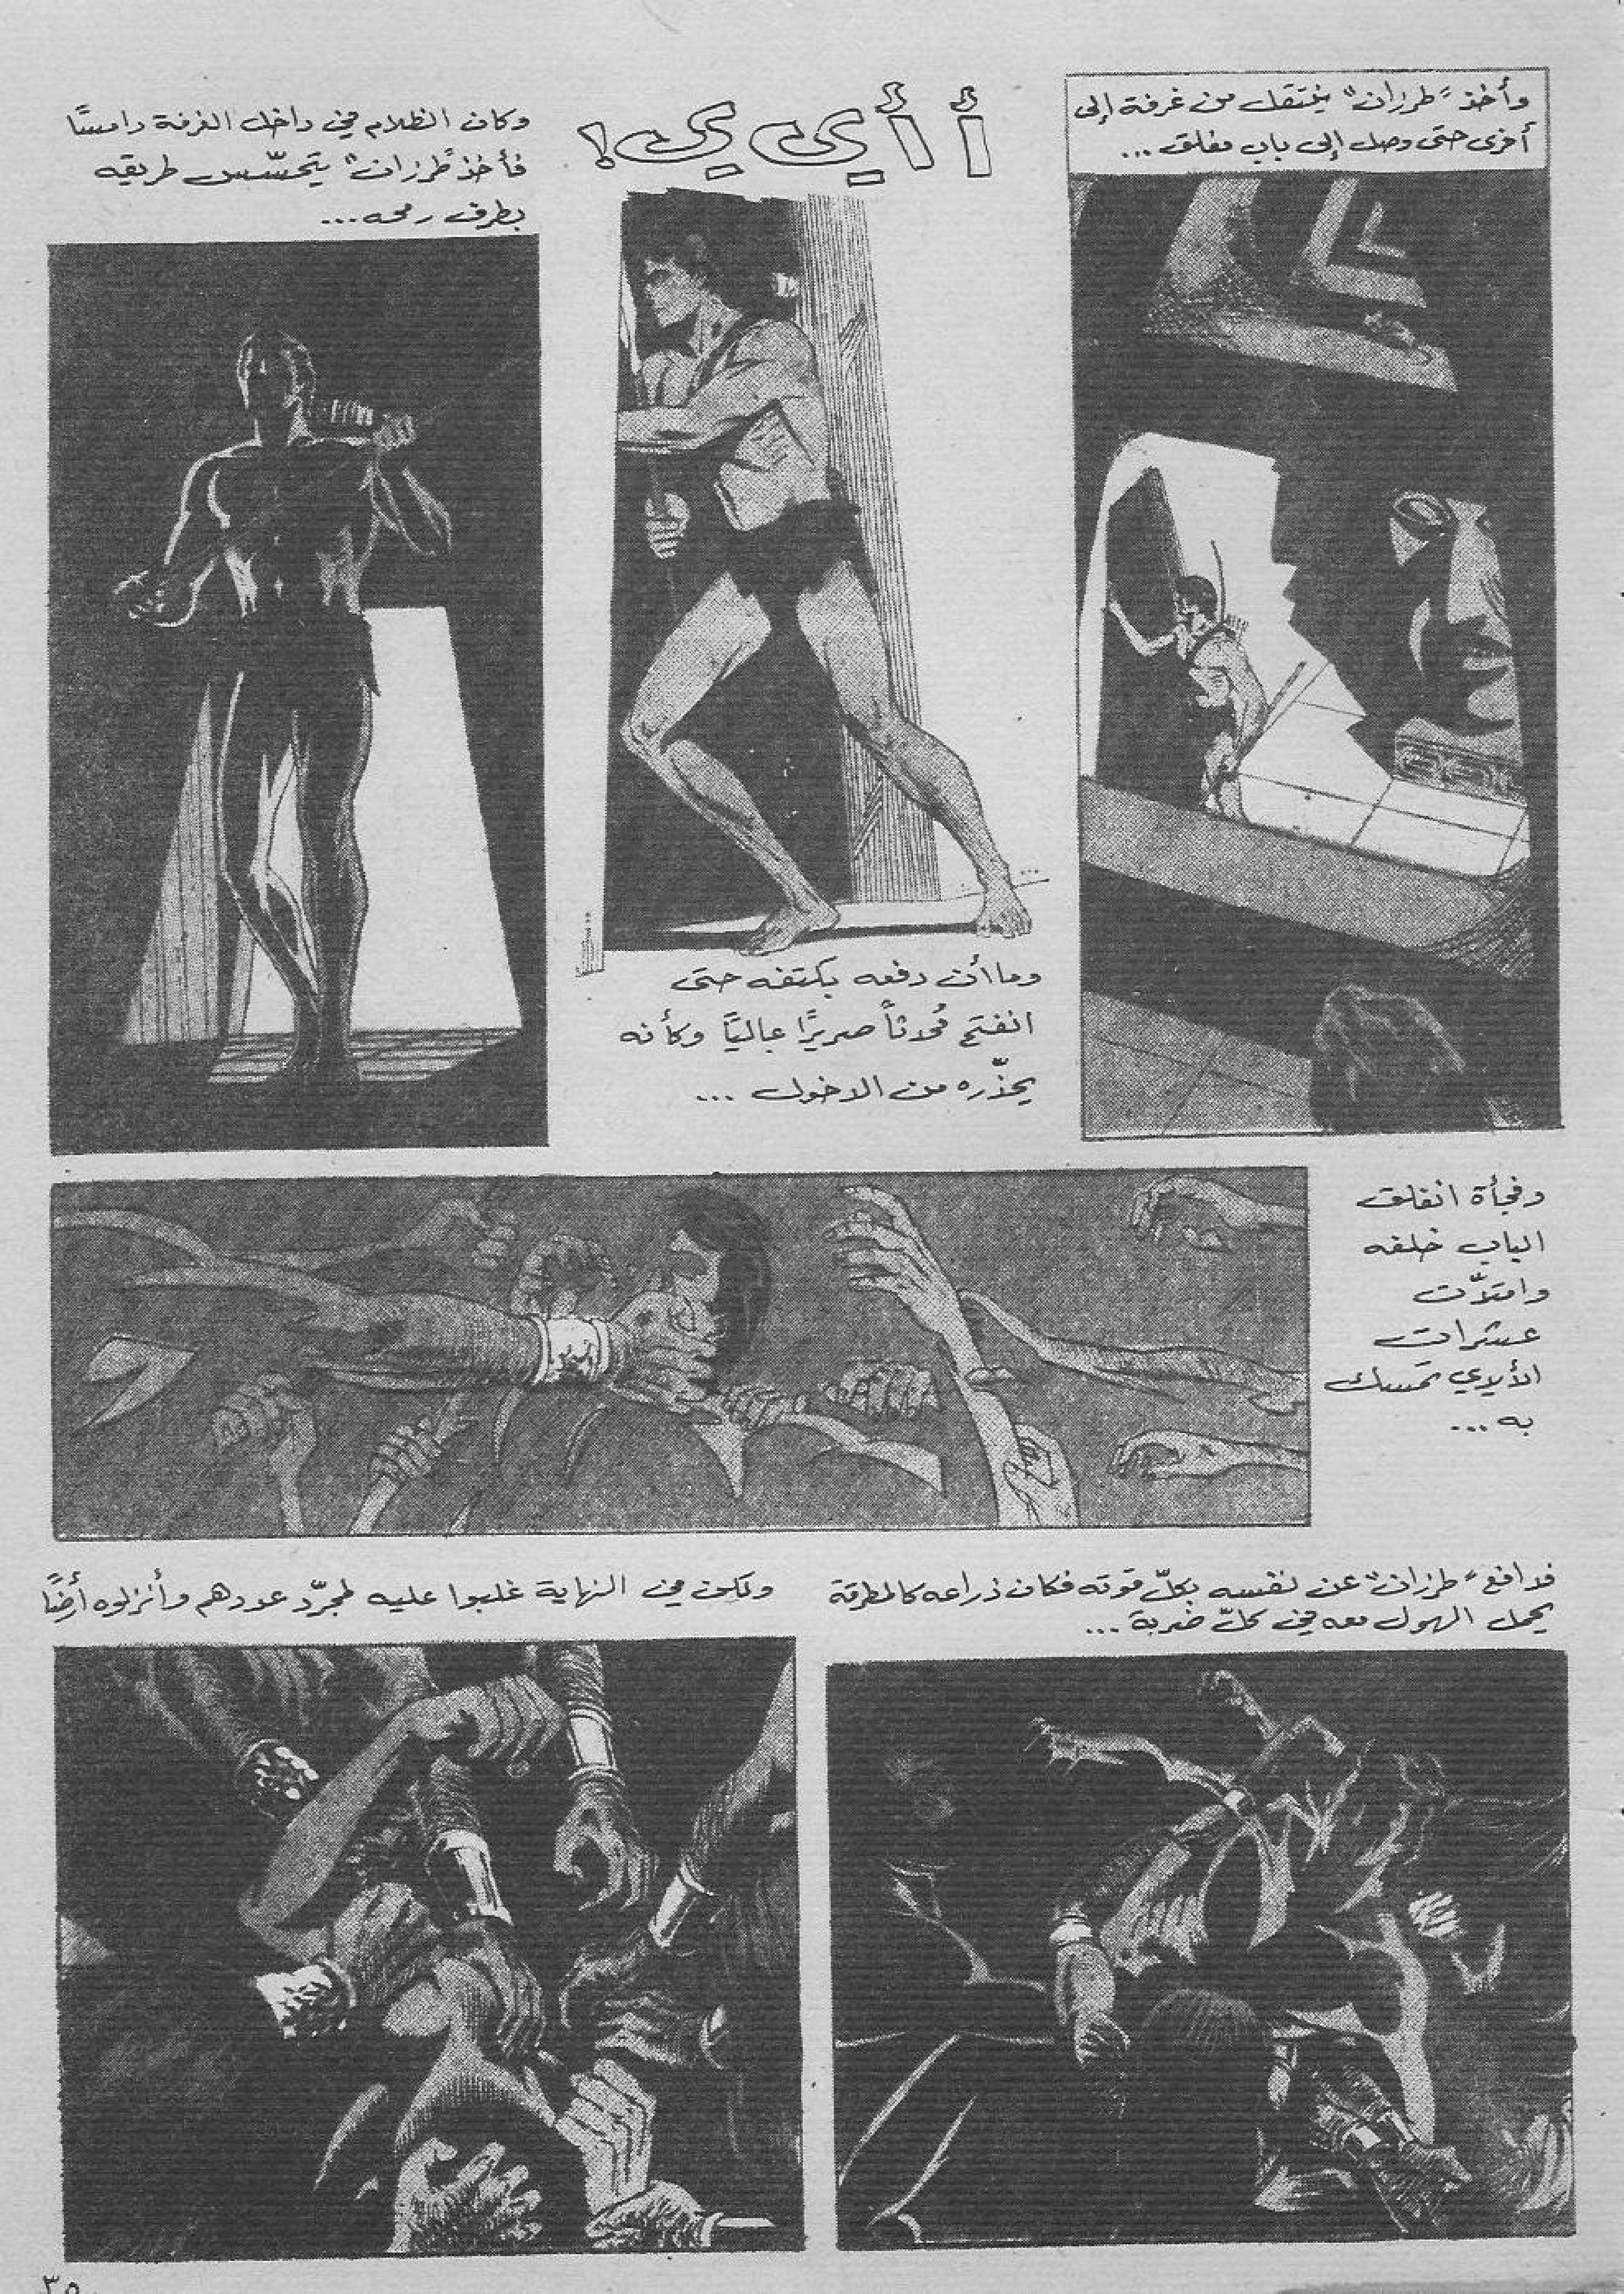 وأخذ "طرزان" ينتقل من غرفة إلى
أخرى حتى وصل إلى باب مغلق ...
أأي ي!
وما أن دفعه بكتفه حتى
انفتح مُحدثاً صريرًا عاليًا وكأنه
يحذّره من الدخول ...
وكان الظلام في داخل الغرفة دامسًا
فأخذ "طرزان" يتحسّس طريقه
بطرف رمحه ...
وفجأة انغلق
الباب خلفه
وامتدّت
عشرات
الأيدي تمسك
به ...
فدافع "طرزان" عن نفسه بكلّ قوته فكان ذراعه كالمطرقة
يحمل الهول معه في كلّ ضربة ...
ولكن في النهاية غلبوا عليه لمجرّد عددهم وأنزلوه أرضًا
٣٥